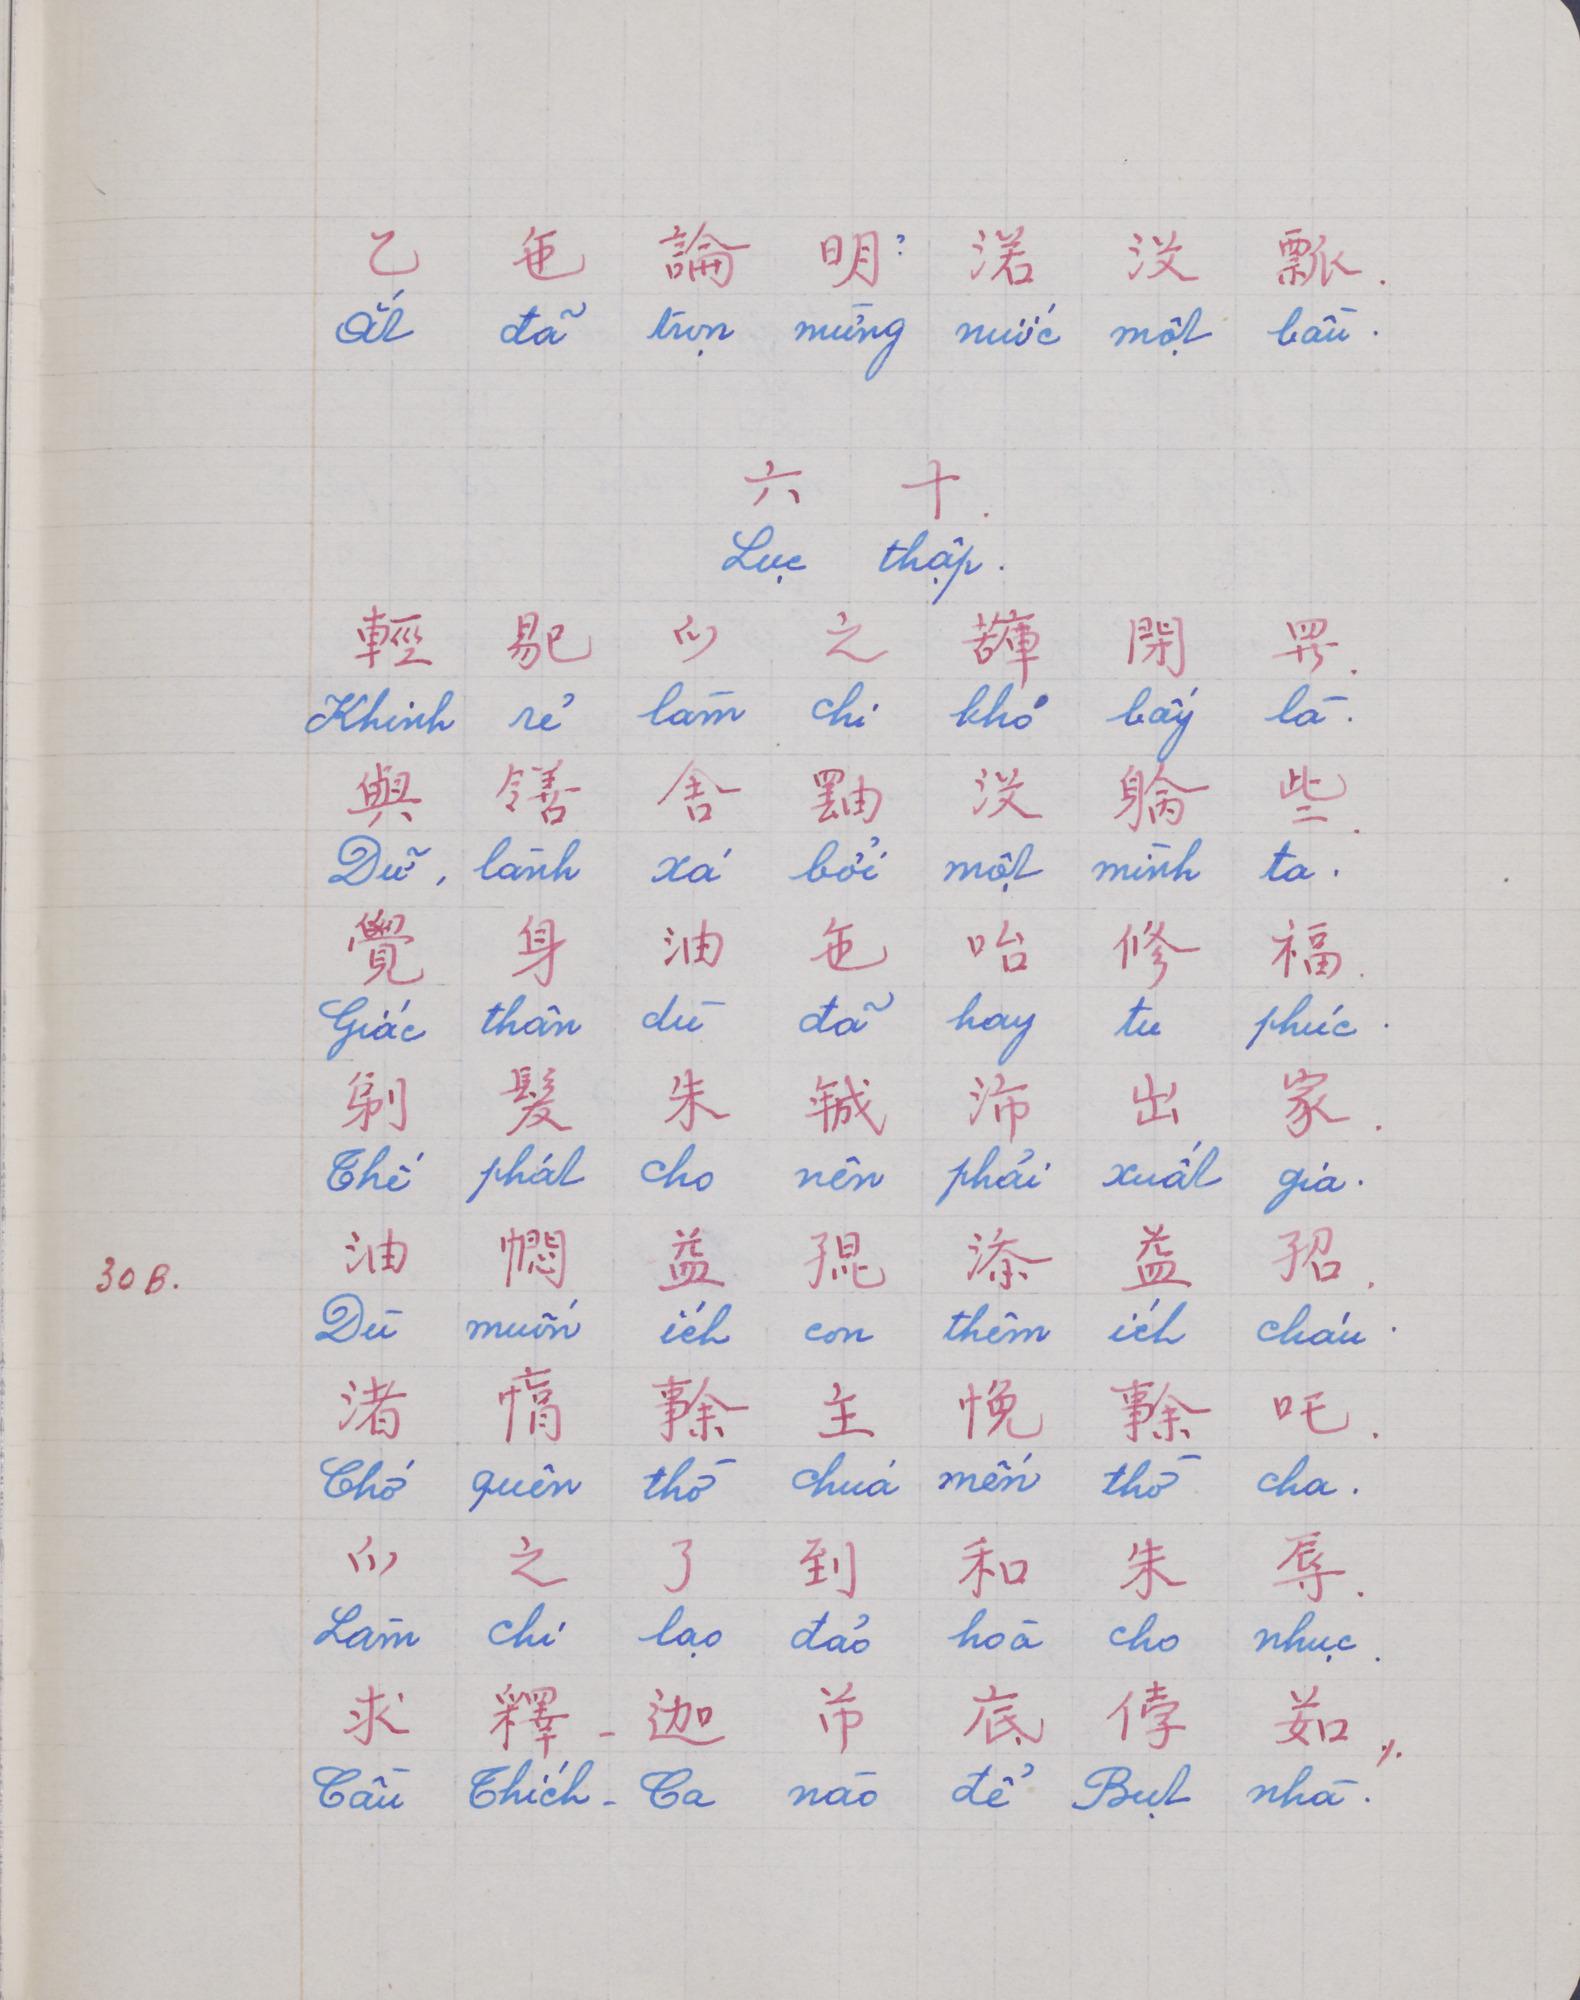 乙 㐌 論 明? 渃 没 瓢.
Ắt đã trọn mừng nước một bầu.
六 十.
Lục thập.
輕 易巳 之 閉 羅.
Khinh rẻ làm chi khó bấy là.
與 舍 没 些.
Dữ, lành xá bởi một mình ta.
覺 身 油 㐌 咍 修 福.
Giác thân dù đã hay tu phúc.
剃 髮 朱 沛 出 家.
Thế phát cho nên phải xuất gia.
30B.
油 益 添 益 㛤.
Dù muốn ích con thêm ích cháu.
渚 主 悗 吒.
Chớ quên thờ chúa mến thờ cha.
之 了 到 和 朱 辱.
Làm chi lạo đảo hoà cho nhục.
求 釋 - 迦 芇 底 㑛 茹./.
Cầu Thích - Ca nào để Bụt nhà.